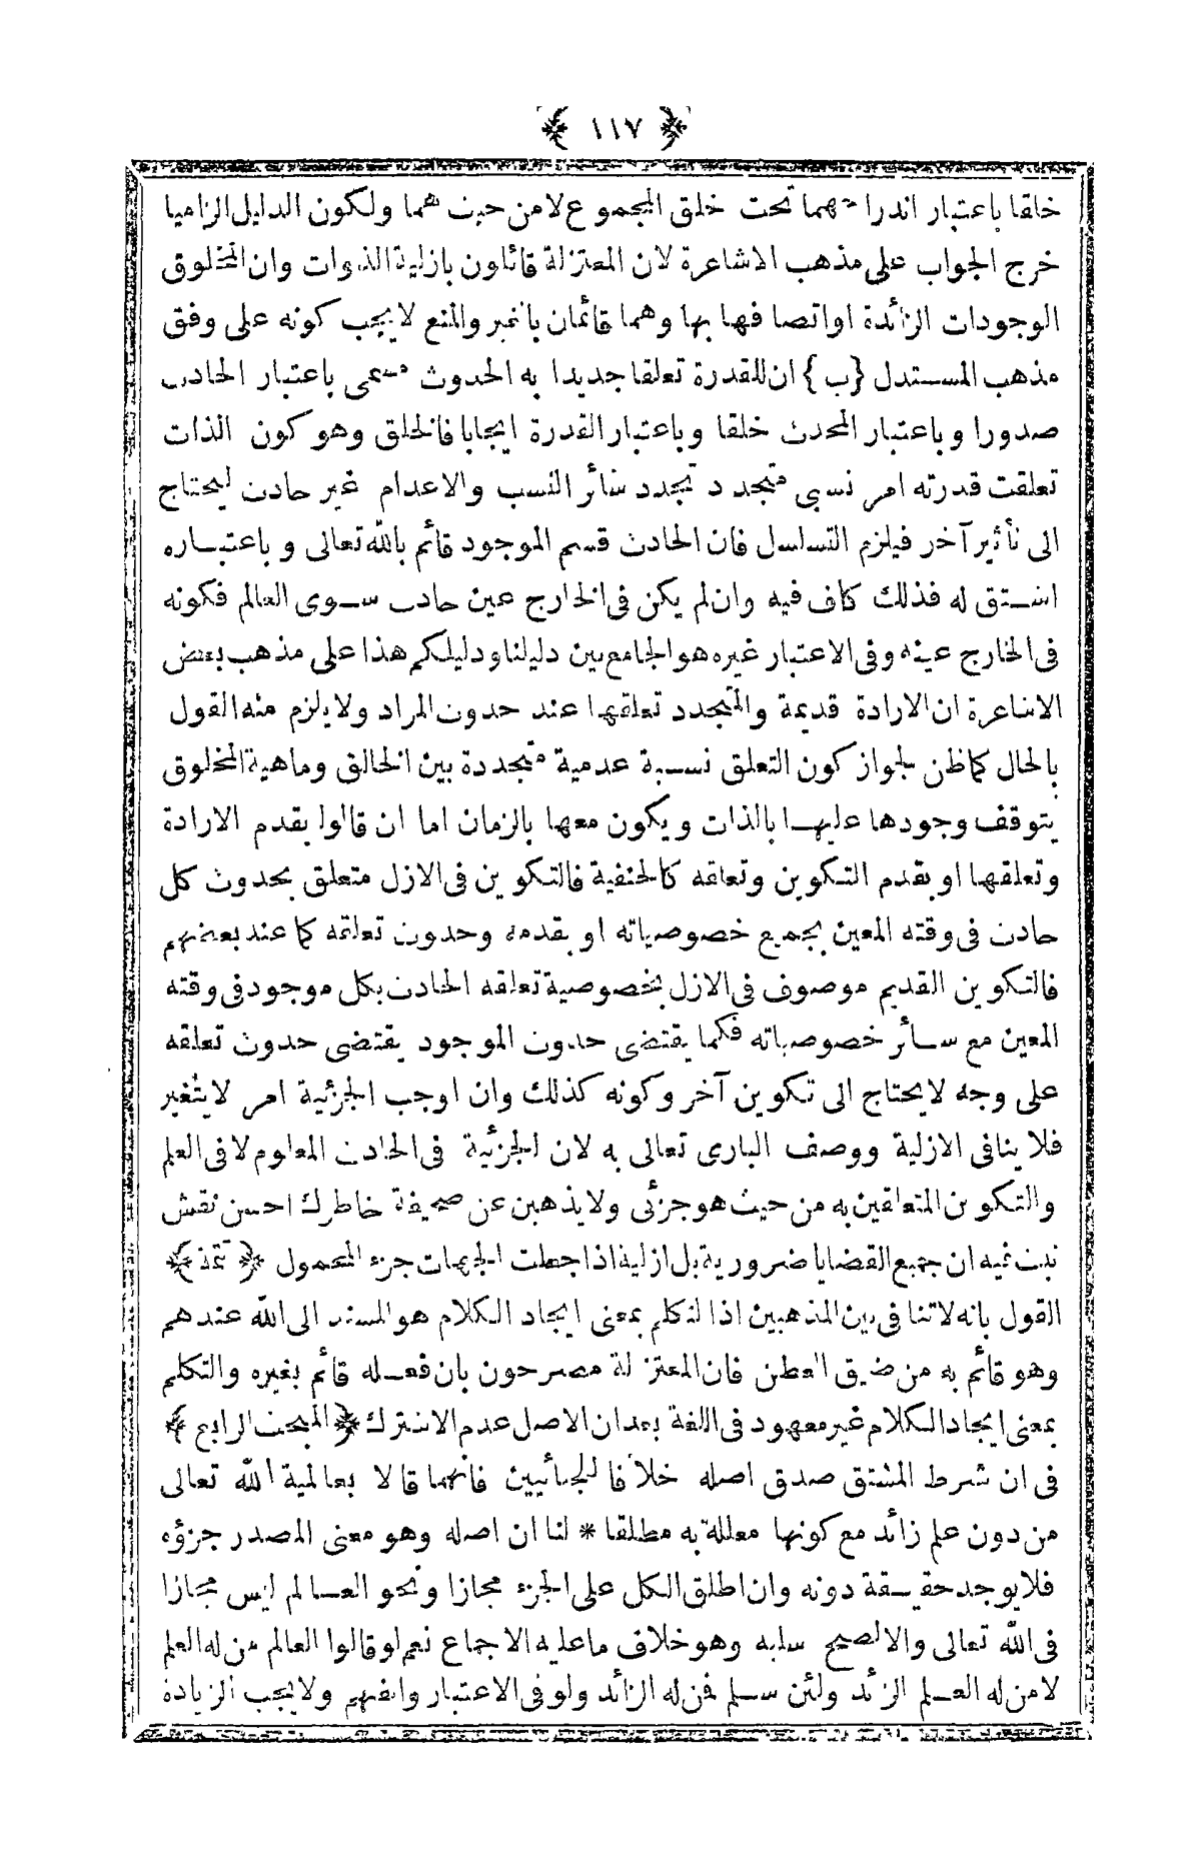 ﴿ ١١٧ ﴾
خلقا باعتبار اندراجهما تحت خلق المجموع لا من حيث هما ولكون الدليل الزاميا
خرج الجواب على مذهب الاشاعرة لان المعتزلة قائلون بازلية الذوات وان المخلوق
الوجودات الزائدة او اتصافها بها وهما قائمان بالغير والمنع لا يجب كونه على وفق
مذهب المستدل {ب} ان للقدرة تعلقا جديدا به الحدوث يسمى باعتبار الحادث
صدورا وباعتبار المحدث خلقا وباعتبار القدرة ايجابا فالخلق وهو كون الذات
تعلقت قدرته امر نسبى متجدد تجدد سائر النسب والاعدام غير حادث ليحتاج
الى تأثير آخر فيلزم التسلسل فان الحادث قسم الموجود قائم بالله تعالى وباعتباره
اشتق له فذلك كاف فيه وان لم يكن فى الخارج عين حادث سوى العالم فكونه
فى الخارج عينه وفى الاعتبار غيره هو الجامع بين دليلنا ودليلكم هذا على مذهب بعض
الاشاعرة ان الارادة قديمة والمتجدد تعلقها عند حدوث المراد ولا يلزم منه القول
بالحال كما ظن لجواز كون التعلق نسبة عدمية متجددة بين الخالق وماهية المخلوق
يتوقف وجودها عليها بالذات ويكون معها بالزمان اما ان قالوا بقدم الارادة
وتعلقها او بقدم التكوين وتعلقه كالحنفية فالتكوين فى الازل متعلق بحدوث كل
حادث فى وقته المعين بجميع خصوصياته او بقدمه وحدوث تعلقه كما عند بعضهم
فالتكوين القديم موصوف فى الازل بخصوصية تعلقه الحادث بكل موجود فى وقته
المعين مع سائر خصوصياته فكما يقتضى حدوث الموجود يقتضى حدوث تعلقه
على وجه لا يحتاج الى تكوين آخر وكونه كذلك وان اوجب الجزئية امر لا يتغير
فلا ينافى الازلية ووصف البارى تعالى به لان الجزئية فى الحادث المعلوم لا فى العلم
والتكوين المتعلقين به من حيث هو جزئى ولا يذهبن عن صحيفة خاطرك احسن نقش
نبت فيه ان جميع القضايا ضرورية بل ازلية اذا جعلت الجهات جزء المحمول ﴿ تتمة ﴾
القول بانه لا تنافى بين المذهبين اذ التكلم بمعنى ايجاد الكلام هو المسند الى الله عندهم
وهو قائم به من ضيق العطن فان المعتزلة مصرحون بان فعله قائم بغيره والتكلم
بمعنى ايجاد الكلام غير معهود فى اللغة بعد ان الاصل عدم الاشتراك ﴿ المبحث الرابع ﴾
فى ان شرط المشتق صدق اصله خلافا للجبائيين فانهما قالا بعالمية الله تعالى
من دون علم زائد مع كونها معللة به مطلقا * لنا ان اصله وهو معنى المصدر جزؤه
فلا يوجد حقيقة دونه وان اطلق الكل على الجزء مجازا ونحو العالم ليس مجازا
فى الله تعالى والا لصح سلبه وهو خلاف ما عليه الاجماع نعم لو قالوا العالم من له العلم
لا من له العلم الزائد ولئن سلم فمن له الزائد ولو فى الاعتبار والفهم ولا يجب الزيادة